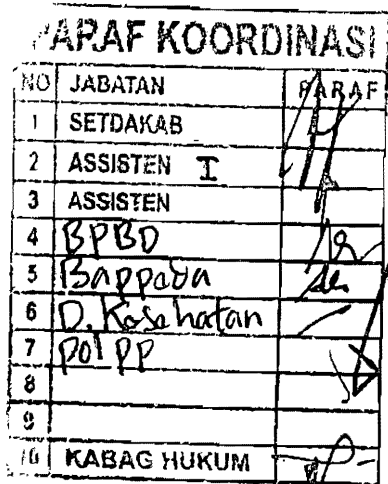 PARAF KOORDINASI
NO JABATAN PARAF
1 SETDAKAB
2 ASSISTEN I
3 ASSISTEN
4 BPBD
5 Bappeda
6 D. Kesehatan
7 pol pp
8
9
10 KABAG HUKUM